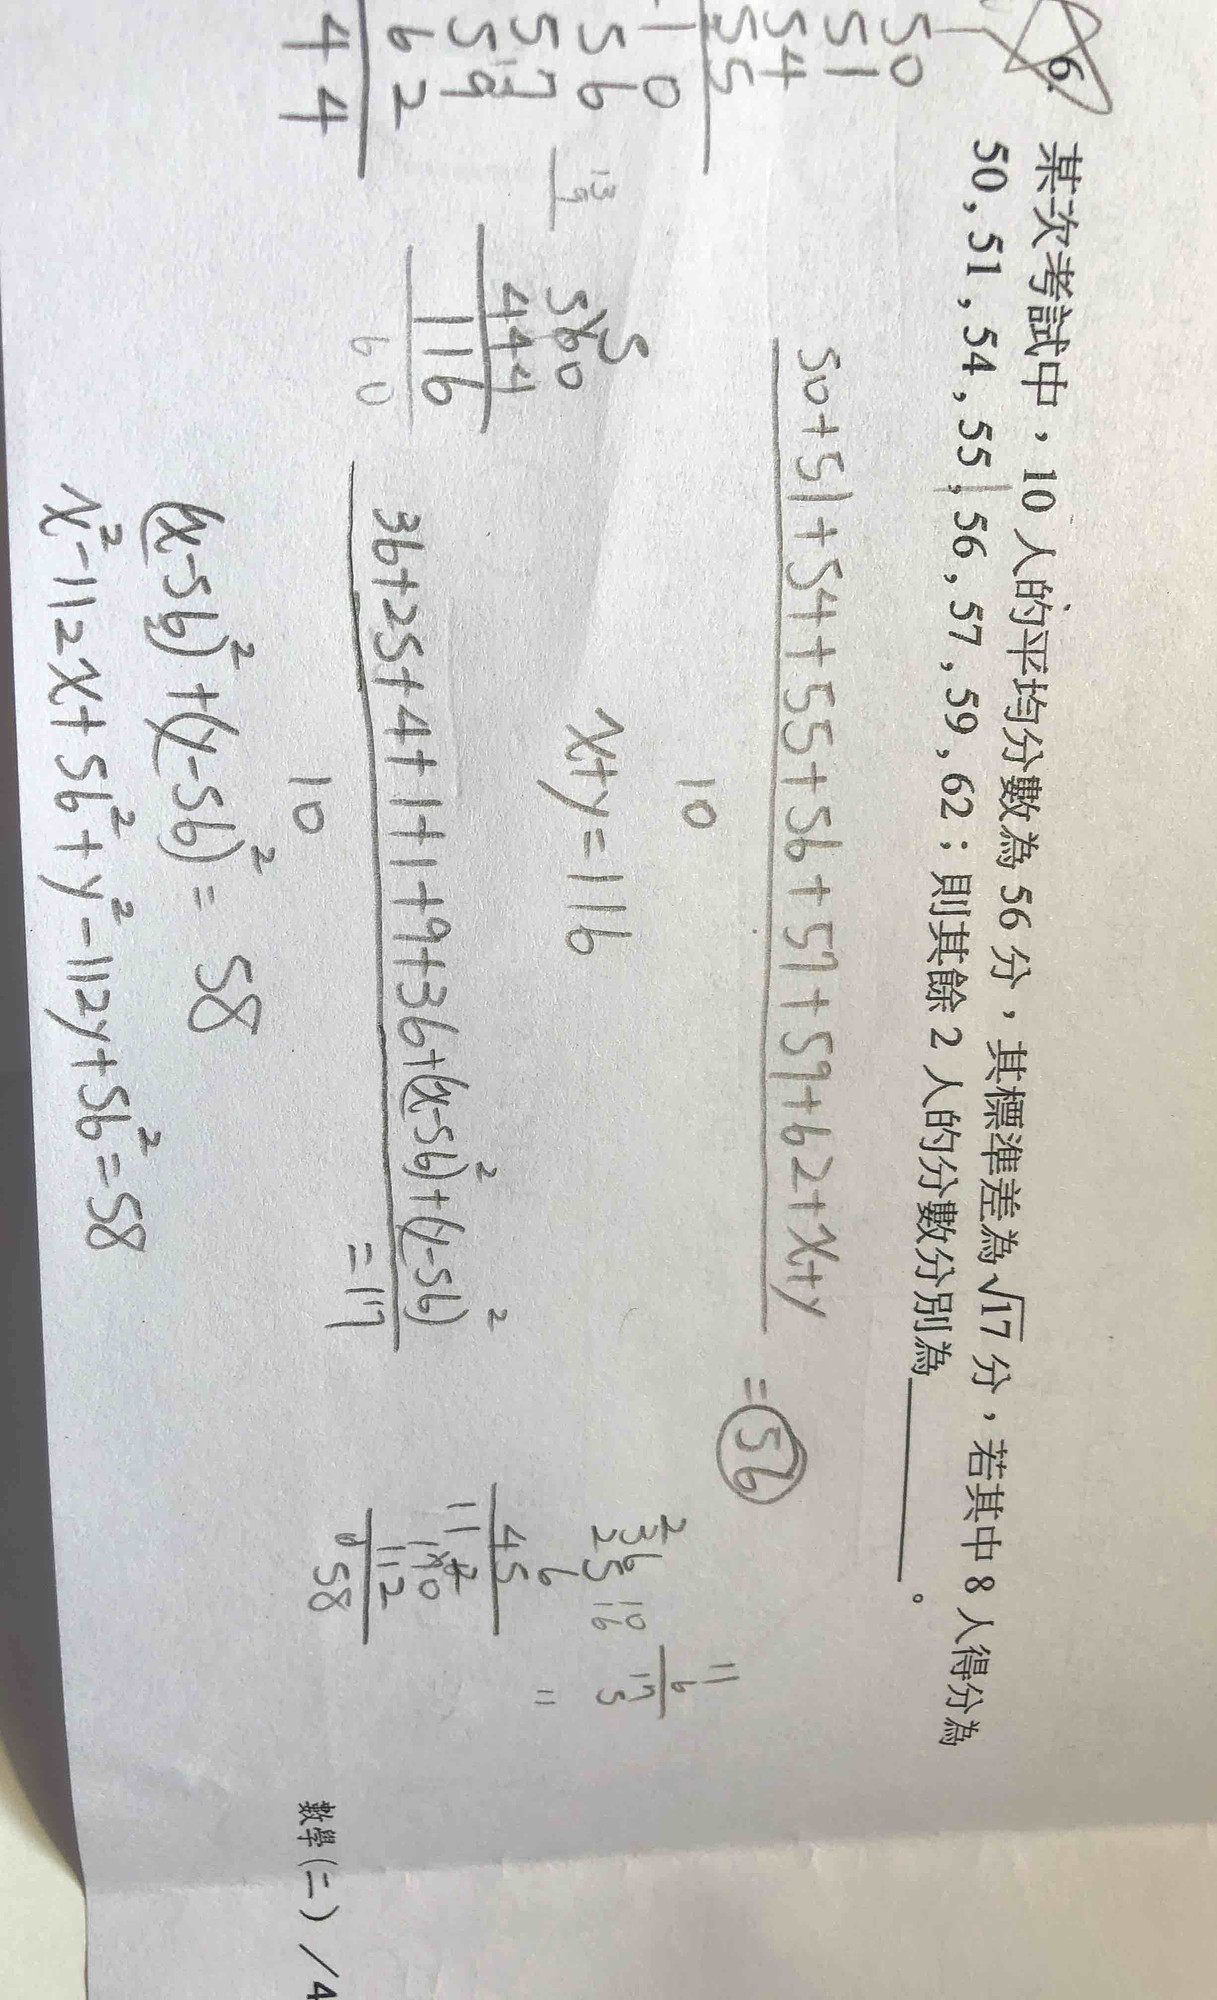 6.
某次考試中，10 人的平均分數為 56 分，其標準差為 √17 分，若其中 8 人得分為
50, 51, 54, 55, 56, 57, 59, 62；則其餘 2 人的分數分別為________。
50
51
54
55
10
56
57
59
62
44
50+51+54+55+56+57+59+62+x+y
10
=56
560
444
116
60
x+y=116
36+25+4+1+1+9+36+(x-56)²+(y-56)²
10
=17
36
25
45
6
11
170
112
58
11
6
17
5
(x-56)²+(y-56)²=58
x²-112x+56²+y²-112y+56²=58
數學(二) / 4